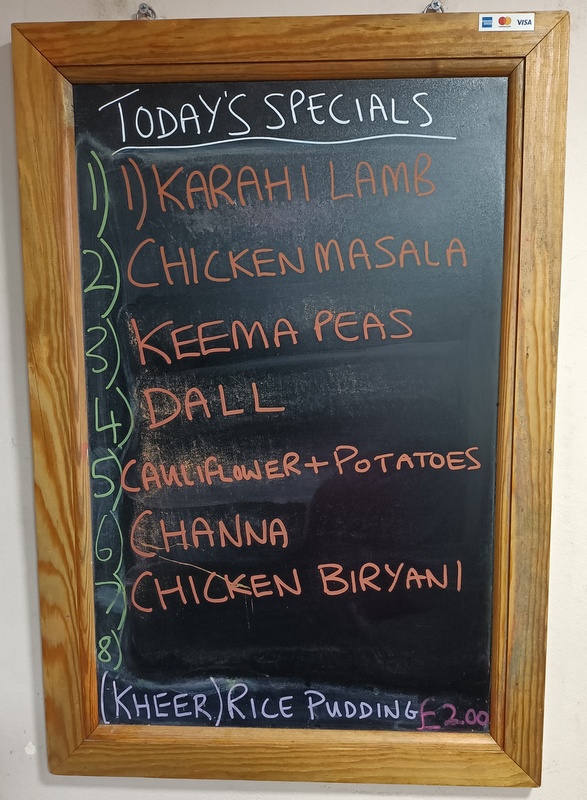 VISA
TODAY'S SPECIALS
1) 1) KARAHI LAMB
2) CHICKEN MASALA
3) KEEMA PEAS
4) DALL
5) CAULIFLOWER + POTATOES
6) CHANNA
7) CHICKEN BIRYANI
8)
(KHEER) RICE PUDDING £2.00